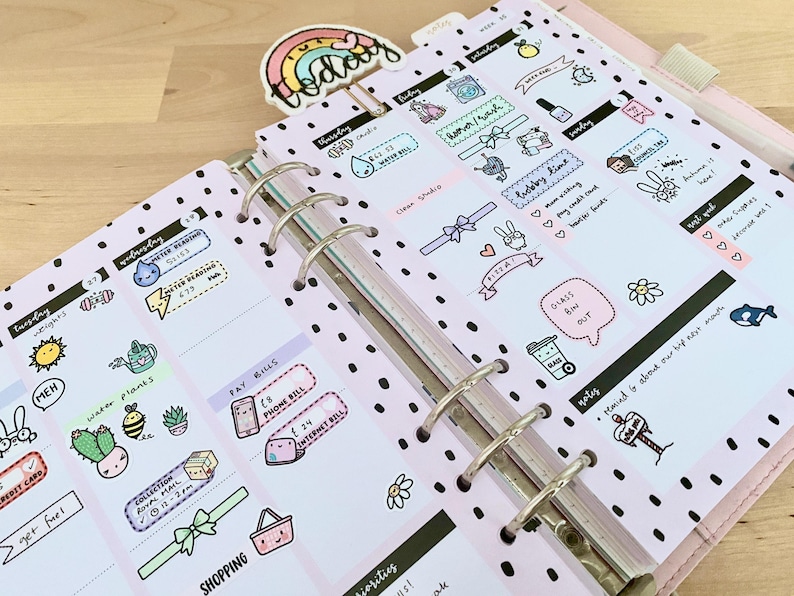 today
notes
WEEK 35
tuesday
27
weights
MEH
water plants
CREDIT CARD
get fuel
COLLECTION
ROYAL MAIL
SHOPPING
wednesday
28
METER READING
52153
METER READING
PAY BILLS
£8
PHONE BILL
£24
INTERNET BILL
priorities
thursday
cardio
£62.53
WATER BILL
clean studio
friday
30
hoover/wash
hobby time
mum visiting
pay credit card
transfer funds
PIZZA!
GLASS
BIN
OUT
GLASS
saturday
31
WEEKEND
sunday
1
£155
COUNCIL TAX
Autumn is
here!
next week
order supplies
decorate
notes
about our trip next month